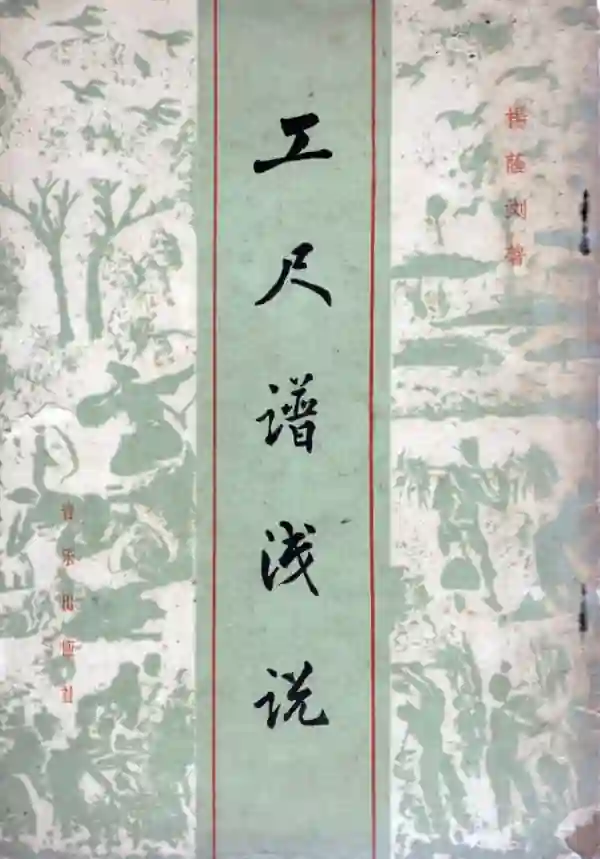 楊蔭浏著
工尺谱浅说
音乐出版社